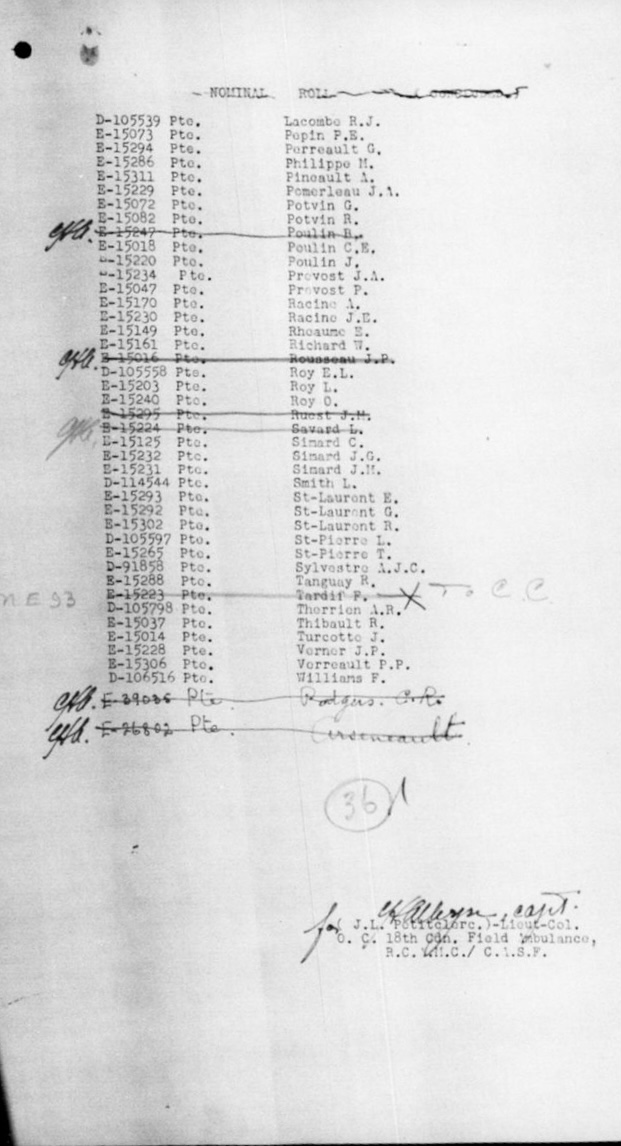 NOMINAL ROLL
D-105539 Pte. Lacombe R.J.
E-15073 Pte. Pepin P.E.
E-15294 Pte. Perreault G.
E-15286 Pte. Philippe M.
E-15311 Pte. Pineault A.
E-15229 Pte. Pomerleau J.A.
E-15072 Pte. Potvin G.
E-15082 Pte. Potvin R.
E-15247 Pte. Poulin R.
E-15018 Pte. Poulin C.E.
E-15220 Pte. Poulin J.
E-15234 Pte. Provost J.A.
E-15047 Pte. Provost P.
E-15170 Pte. Racine A.
E-15230 Pte. Racine J.E.
E-15149 Pte. Rheaume E.
E-15161 Pte. Richard W.
E-15016 Pte. Rousseau J.P.
D-105558 Pte. Roy E.L.
E-15203 Pte. Roy L.
E-15240 Pte. Roy O.
E-15295 Pte. Ruest J.M.
E-15224 Pte. Savard L.
E-15125 Pte. Simard C.
E-15232 Pte. Simard J.G.
E-15231 Pte. Simard J.M.
D-114544 Pte. Smith L.
E-15293 Pte. St-Laurent E.
E-15292 Pte. St-Laurent G.
E-15302 Pte. St-Laurent R.
D-105597 Pte. St-Pierre L.
E-15265 Pte. St-Pierre T.
D-91858 Pte. Sylvestre A.J.C.
E-15288 Pte. Tanguay R.
E-15223 Pte. Tardif F. X To C.C.
D-105798 Pte. Therrien A.R.
E-15037 Pte. Thibault R.
E-15014 Pte. Turcotte J.
E-15228 Pte. Verner J.P.
E-15306 Pte. Verreault P.P.
D-106516 Pte. Williams F.
E-39036 Pte Rodgers. C.R.
E-26802 Pte. Arseneault
36
capt.
for ( J.L. Petitclerc.)-Lieut-Col.
O. C. 18th Cdn. Field Ambulance,
R.C.A.M.C./ C.A.S.F.